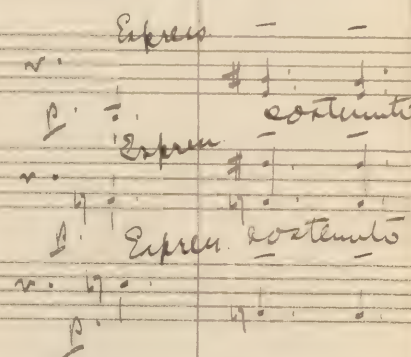 Express
p. sostenuto
Espress
p. Espress. sostenuto
p.